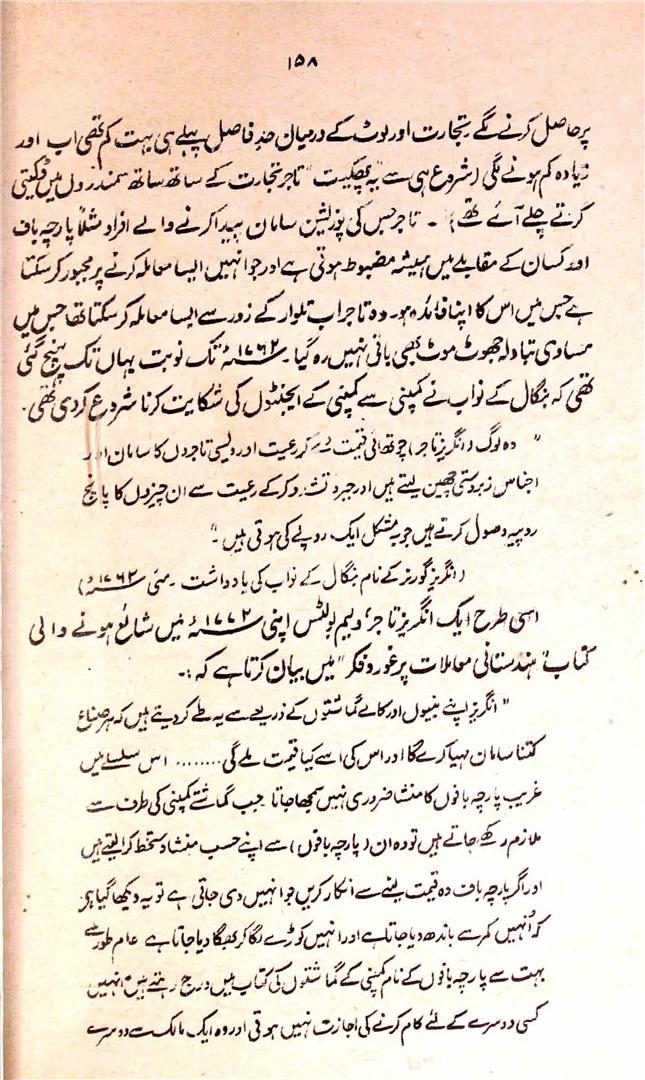 ۱۵۸
پر حاصل کرنے لگے۔ تجارت اور لوٹ کے درمیان حدِ فاصل پہلے ہی بہت کم تھی اب اور
زیادہ کم ہونے لگی (شروع ہی سے "یہ تاجر تجارت کے ساتھ ساتھ سمندروں میں ڈکیتی
کرتے چلے آئے تھے)۔ تاجر جس کی پوزیشن سامان پیدا کرنے والے افراد مثلاً پارچہ باف
اور کسان کے مقابلے میں ہمیشہ مضبوط ہوتی ہے اور جو انہیں ایسا معاملہ کرنے پر مجبور کر سکتا
ہے جس میں اس کا اپنا فائدہ ہو۔ وہ تاجر اب تلوار کے زور سے ایسا معاملہ کر سکتا تھا جس میں
مساوی تبادلہ جھوٹ موٹ بھی باقی نہیں رہ گیا۔ ۱۷۶۲ء تک نوبت یہاں تک پہنچ گئی
تھی کہ بنگال کے نواب نے کمپنی سے کمپنی کے ایجنٹوں کی شکایت کرنا شروع کر دی تھی۔
"وہ لوگ (انگریز تاجر) چوتھائی قیمت دے کر رعیت اور دیسی تاجروں کا سامان اور
اجناس زبردستی چھین لیتے ہیں اور جبر و تشدد کر کے رعیت سے ان چیزوں کا پانچ
روپیہ وصول کرتے ہیں جو بہ مشکل ایک روپے کی ہوتی ہیں۔"
(انگریز گورنر کے نام بنگال کے نواب کی یادداشت۔ مئی ۱۷۶۲ء)
اسی طرح ایک انگریز تاجر، ولیم بولٹس اپنی ۱۷۷۲ء میں شائع ہونے والی
کتاب "ہندستانی معاملات پر غور و فکر" میں بیان کرتا ہے کہ:۔
"انگریز اپنے بنیوں اور کالے گماشتوں کے ذریعے سے یہ طے کر دیتے ہیں کہ ہر صناع
کتنا سامان مہیا کرے گا اور اس کی اسے کیا قیمت ملے گی........ اس سلسلے میں
غریب پارچہ بافوں کا منشا ضروری نہیں سمجھا جاتا جب گماشتے کمپنی کی طرف سے
ملازم رکھے جاتے ہیں تو وہ ان (پارچہ بافوں) سے اپنے حسب منشا دستخط کرا لیتے ہیں
اور اگر پارچہ باف وہ قیمت لینے سے انکار کریں جو انہیں دی جاتی ہے تو یہ دیکھا گیا ہے
کہ اُنہیں کمر سے باندھ دیا جاتا ہے اور انہیں کوڑے لگا کر بھگا دیا جاتا ہے عام طور سے
بہت سے پارچہ بافوں کے نام کمپنی کے گماشتوں کی کتاب میں درج رہتے ہیں۔ انہیں
کسی دوسرے کے لئے کام کرنے کی اجازت نہیں ہوتی اور وہ ایک مالک سے دوسرے